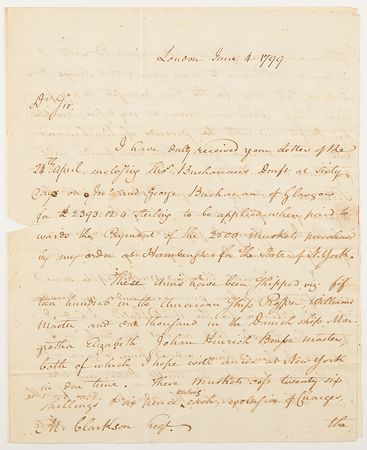 London June 4. 1799.
Dr Sir.
I have duly received your letter of the
24th April, enclosing Thos Buchanan's Draft at Sixty
Days on Jno and George Buchanan of Glasgow
for £2393.12.4 Sterling to be applied when paid to
wards the Payment of the 2500 Muskets purchased
by my order at Hamburgh for the State of N. York.
These Arms have been shipped viz fif
teen hundred in the American Ship Williams
Master and one thousand in the Danish ship Mar
gretha Elizabeth Johan Hinrich master,
both of which I hope will arrive at New York
in due time. These Muskets cost twenty six
shillings & six pence sterling each, exclusive of Charges.
M. Clarkson Esqr.
the